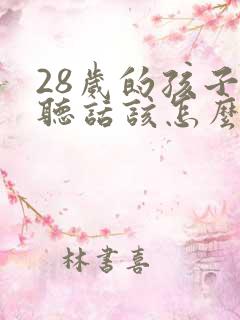 28歲的孩子
聽話該怎麼
林書喜